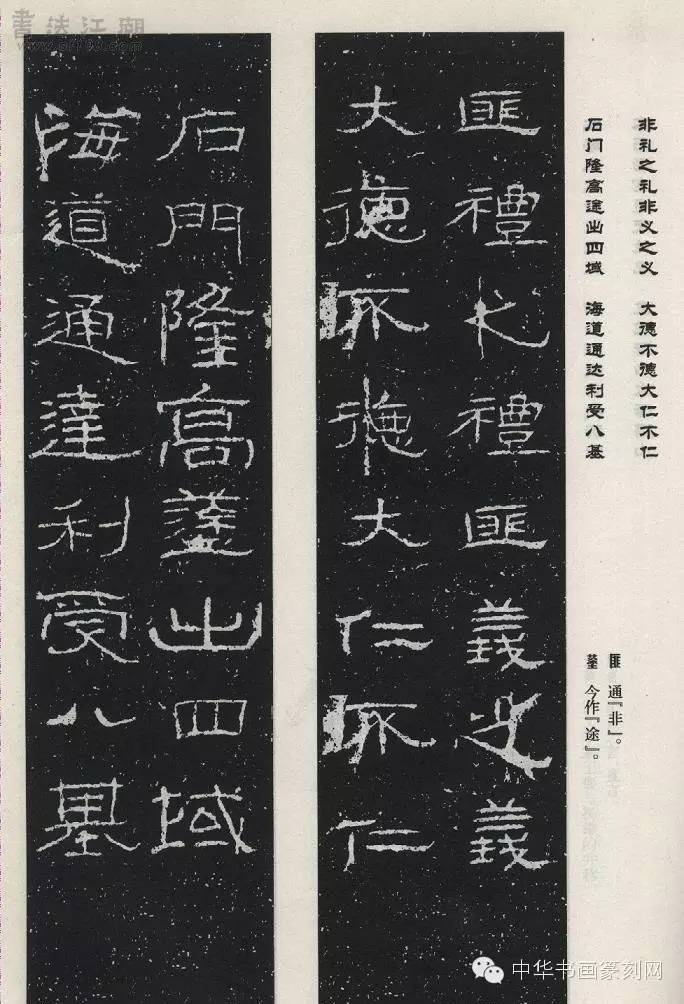 書法江湖
非礼之礼非义之义 大德不德大仁不仁
石门隆高途出四域 海道通达利受八基
匪 通『非』。
今作『途』。
匪禮之禮匪義之義
大德不德大仁不仁
石門隆高出四域
海道通達利受八基
中华书画篆刻网